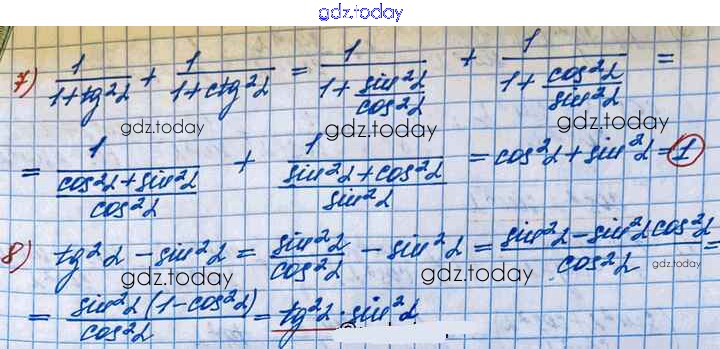 gdz.today
7) 1/(1+tg²α) + 1/(1+ctg²α) = 1/(1+sin²α/cos²α) + 1/(1+cos²α/sin²α) =
gdz.today gdz.today gdz.today
= 1/((cos²α+sin²α)/cos²α) + 1/((sin²α+cos²α)/sin²α) = cos²α+sin²α=1
8) tg²α - sin²α = sin²α/cos²α - sin²α = (sin²α-sin²αcos²α)/cos²α =
gdz.today gdz.today gdz.today
= sin²α(1-cos²α)/cos²α = tg²α·sin²α